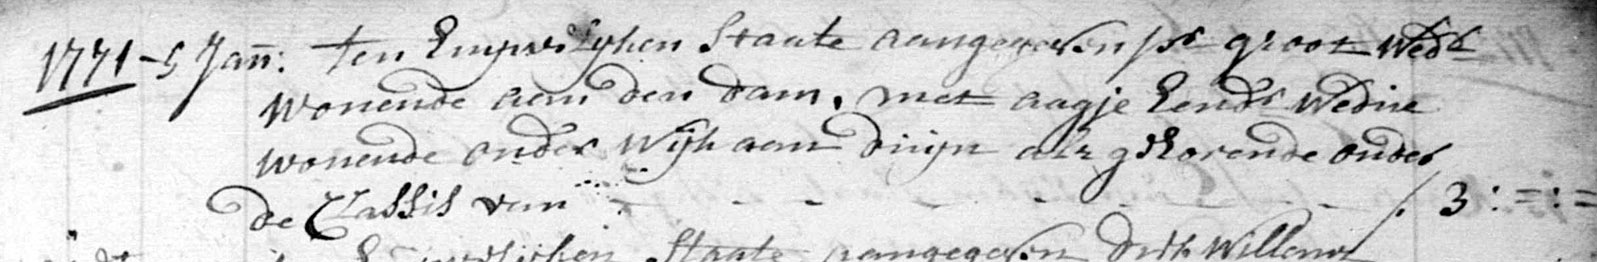 1771 - 5 Jan: ten Huwelijken Staate aangegeven pr groot Wedr
Wonende aan den dam, met aagje Eendr Wedúe
wonende onder Wijk aan duijn als gehorende onder
de Classis van - - - - - - - - ƒ 3:=:=
Staate aangegeven dirk Willems